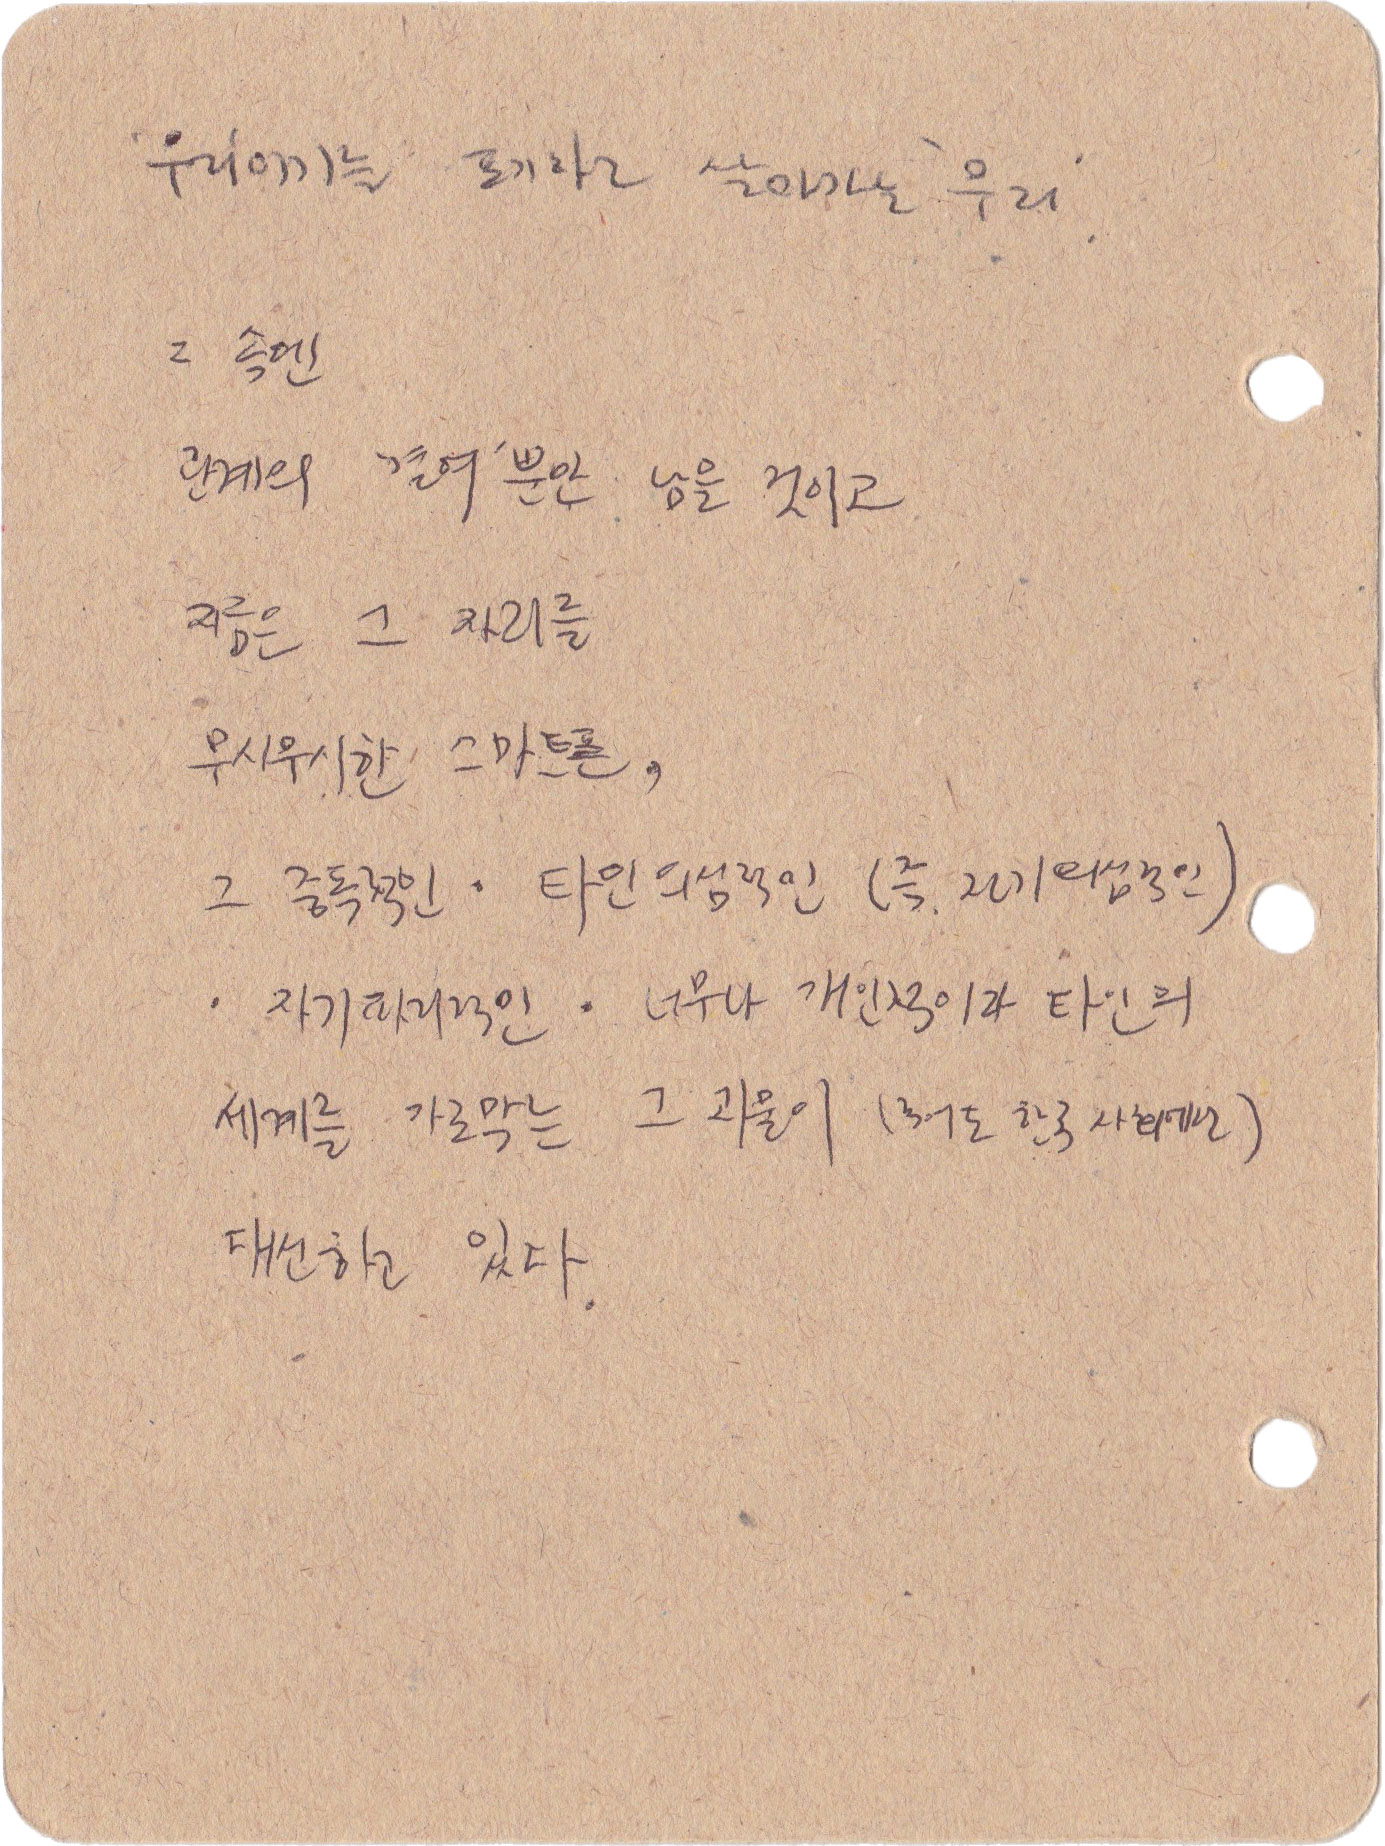 '우리'이기를 포기하고 살아가는 '우리'.
그 속엔
관계의 '결여'뿐만 남을 것이고
지금은 그 자리를
무시무시한 스마트폰,
그 중독적인 · 타인의심적인 (즉, 자기의심적인)
· 자기파괴적인 · 너무나 개인적이라 타인의
세계를 가로막는 그 괴물이 (적어도 한국 사회에선)
대신하고 있다.